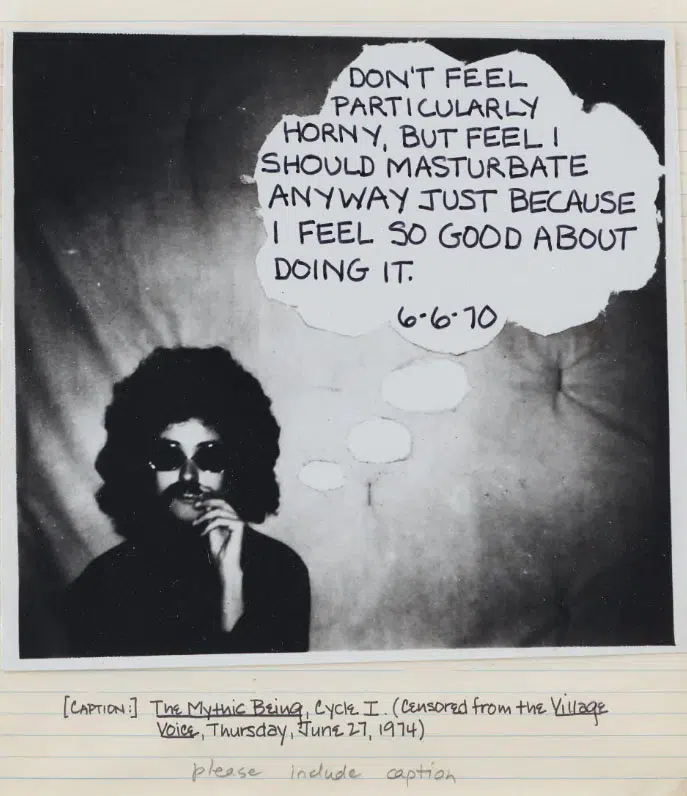 DON'T FEEL
PARTICULARLY
HORNY, BUT FEEL I
SHOULD MASTURBATE
ANYWAY JUST BECAUSE
I FEEL SO GOOD ABOUT
DOING IT.
6·6·70
[CAPTION:] The Mythic Being, Cycle I. (Censored from the Village
Voice, Thursday, June 27, 1974)
please include caption